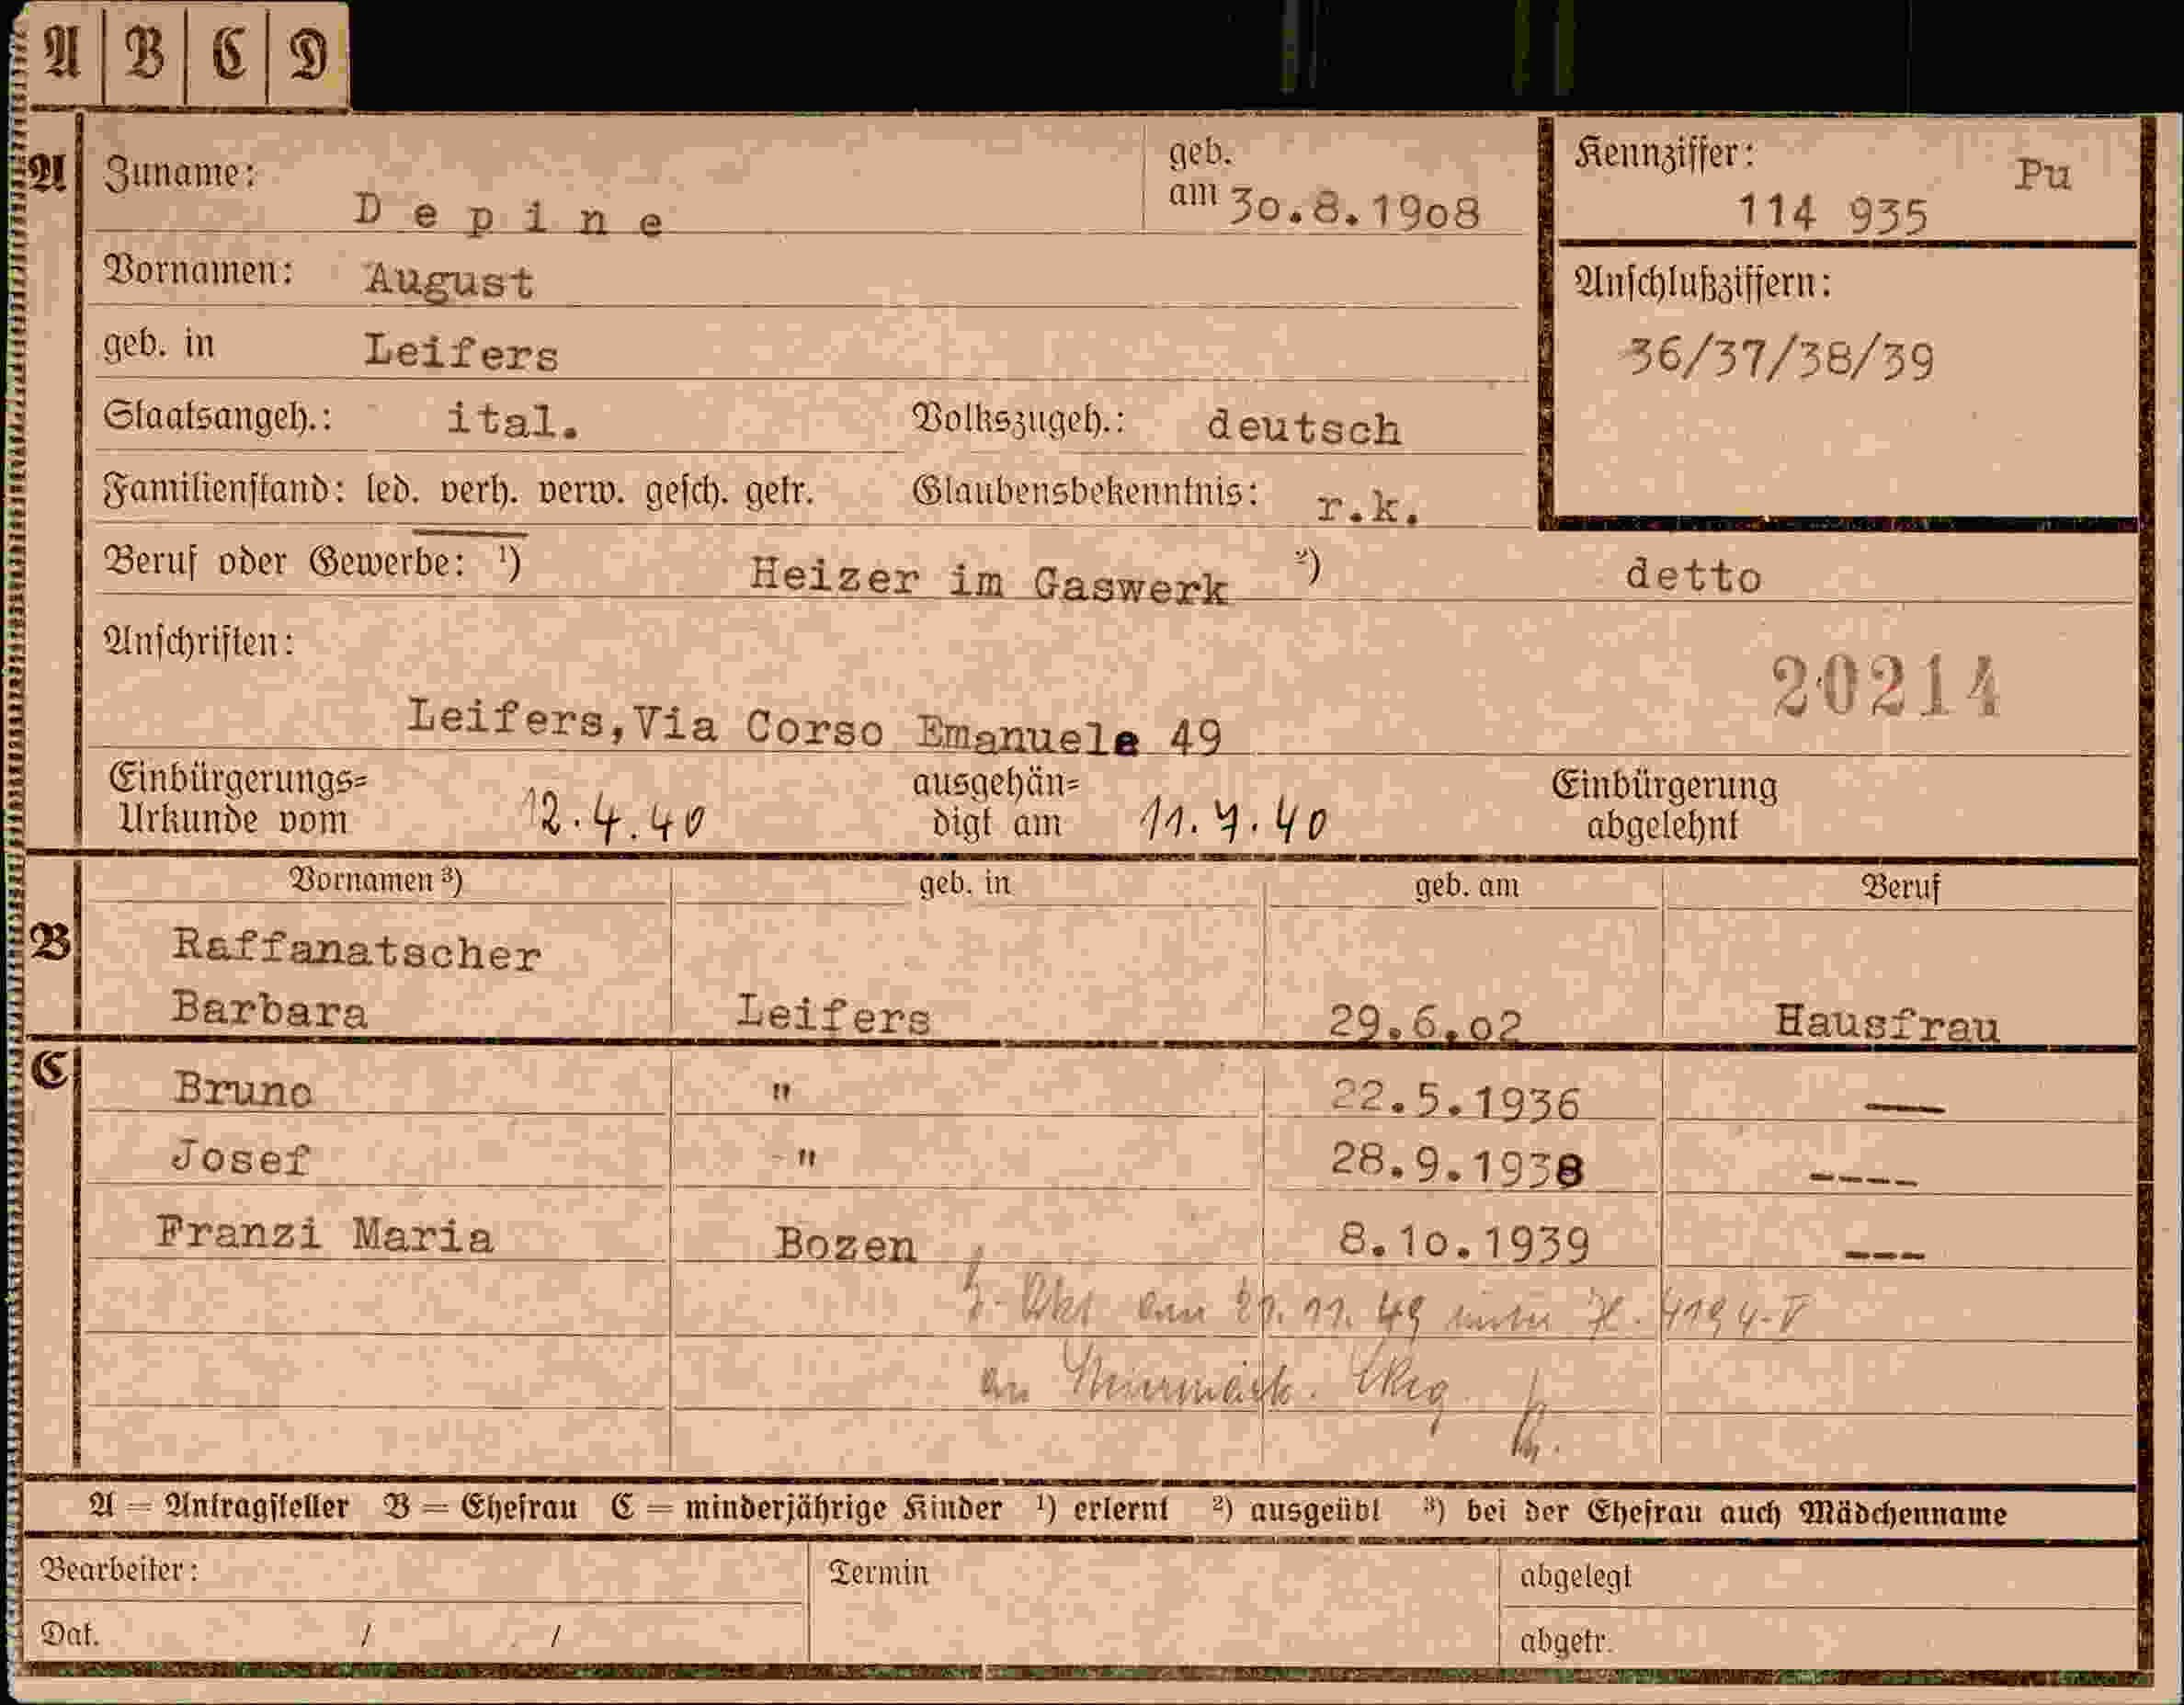 A B C D
A Zuname: Depine geb. am 30.8.1908 Kennziffer: Pu
114 935
Vornamen: August Anschlußziffern:
geb. in Leifers 36/37/38/39
Staatsangeh.: ital. Volkszugeh.: deutsch
Familienstand: led. verh. verw. gesch. getr. Glaubensbekenntnis: r.k.
Beruf oder Gewerbe: ¹) Heizer im Gaswerk ²) detto
Anschriften:
20214
Leifers,Via Corso Emanuele 49
Einbürgerungs= ausgehän= Einbürgerung
Urkunde vom 12.4.40 digt am 11.7.40 abgelehnt
Vornamen ³) geb. in geb. am Beruf
B Raffanatscher
Barbara Leifers 29.6.02 Hausfrau
C Bruno " 22.5.1936 —
Josef -" 28.9.1938 ----
Franzi Maria Bozen 8.10.1939 ---
am 21.11.49 unter 4194-V
an
A = Antragsteller B = Ehefrau C = minderjährige Kinder ¹) erlernt ²) ausgeübt ³) bei der Ehefrau auch Mädchenname
Bearbeiter: Termin abgelegt
Dat. / / abgetr.